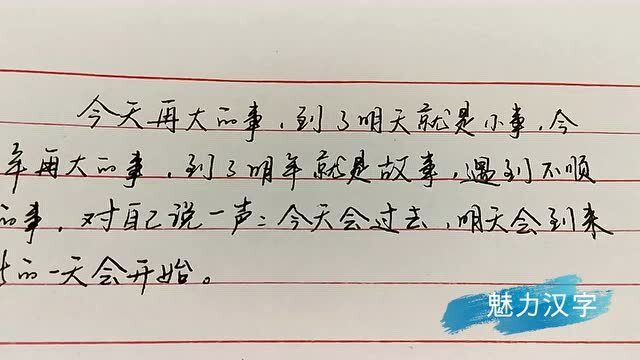 今天再大的事,到了明天就是小事,今
年再大的事,到了明年就是故事,遇到不顺
的事,对自己说一声:今天会过去,明天会到来
的一天会开始。
魅力汉字